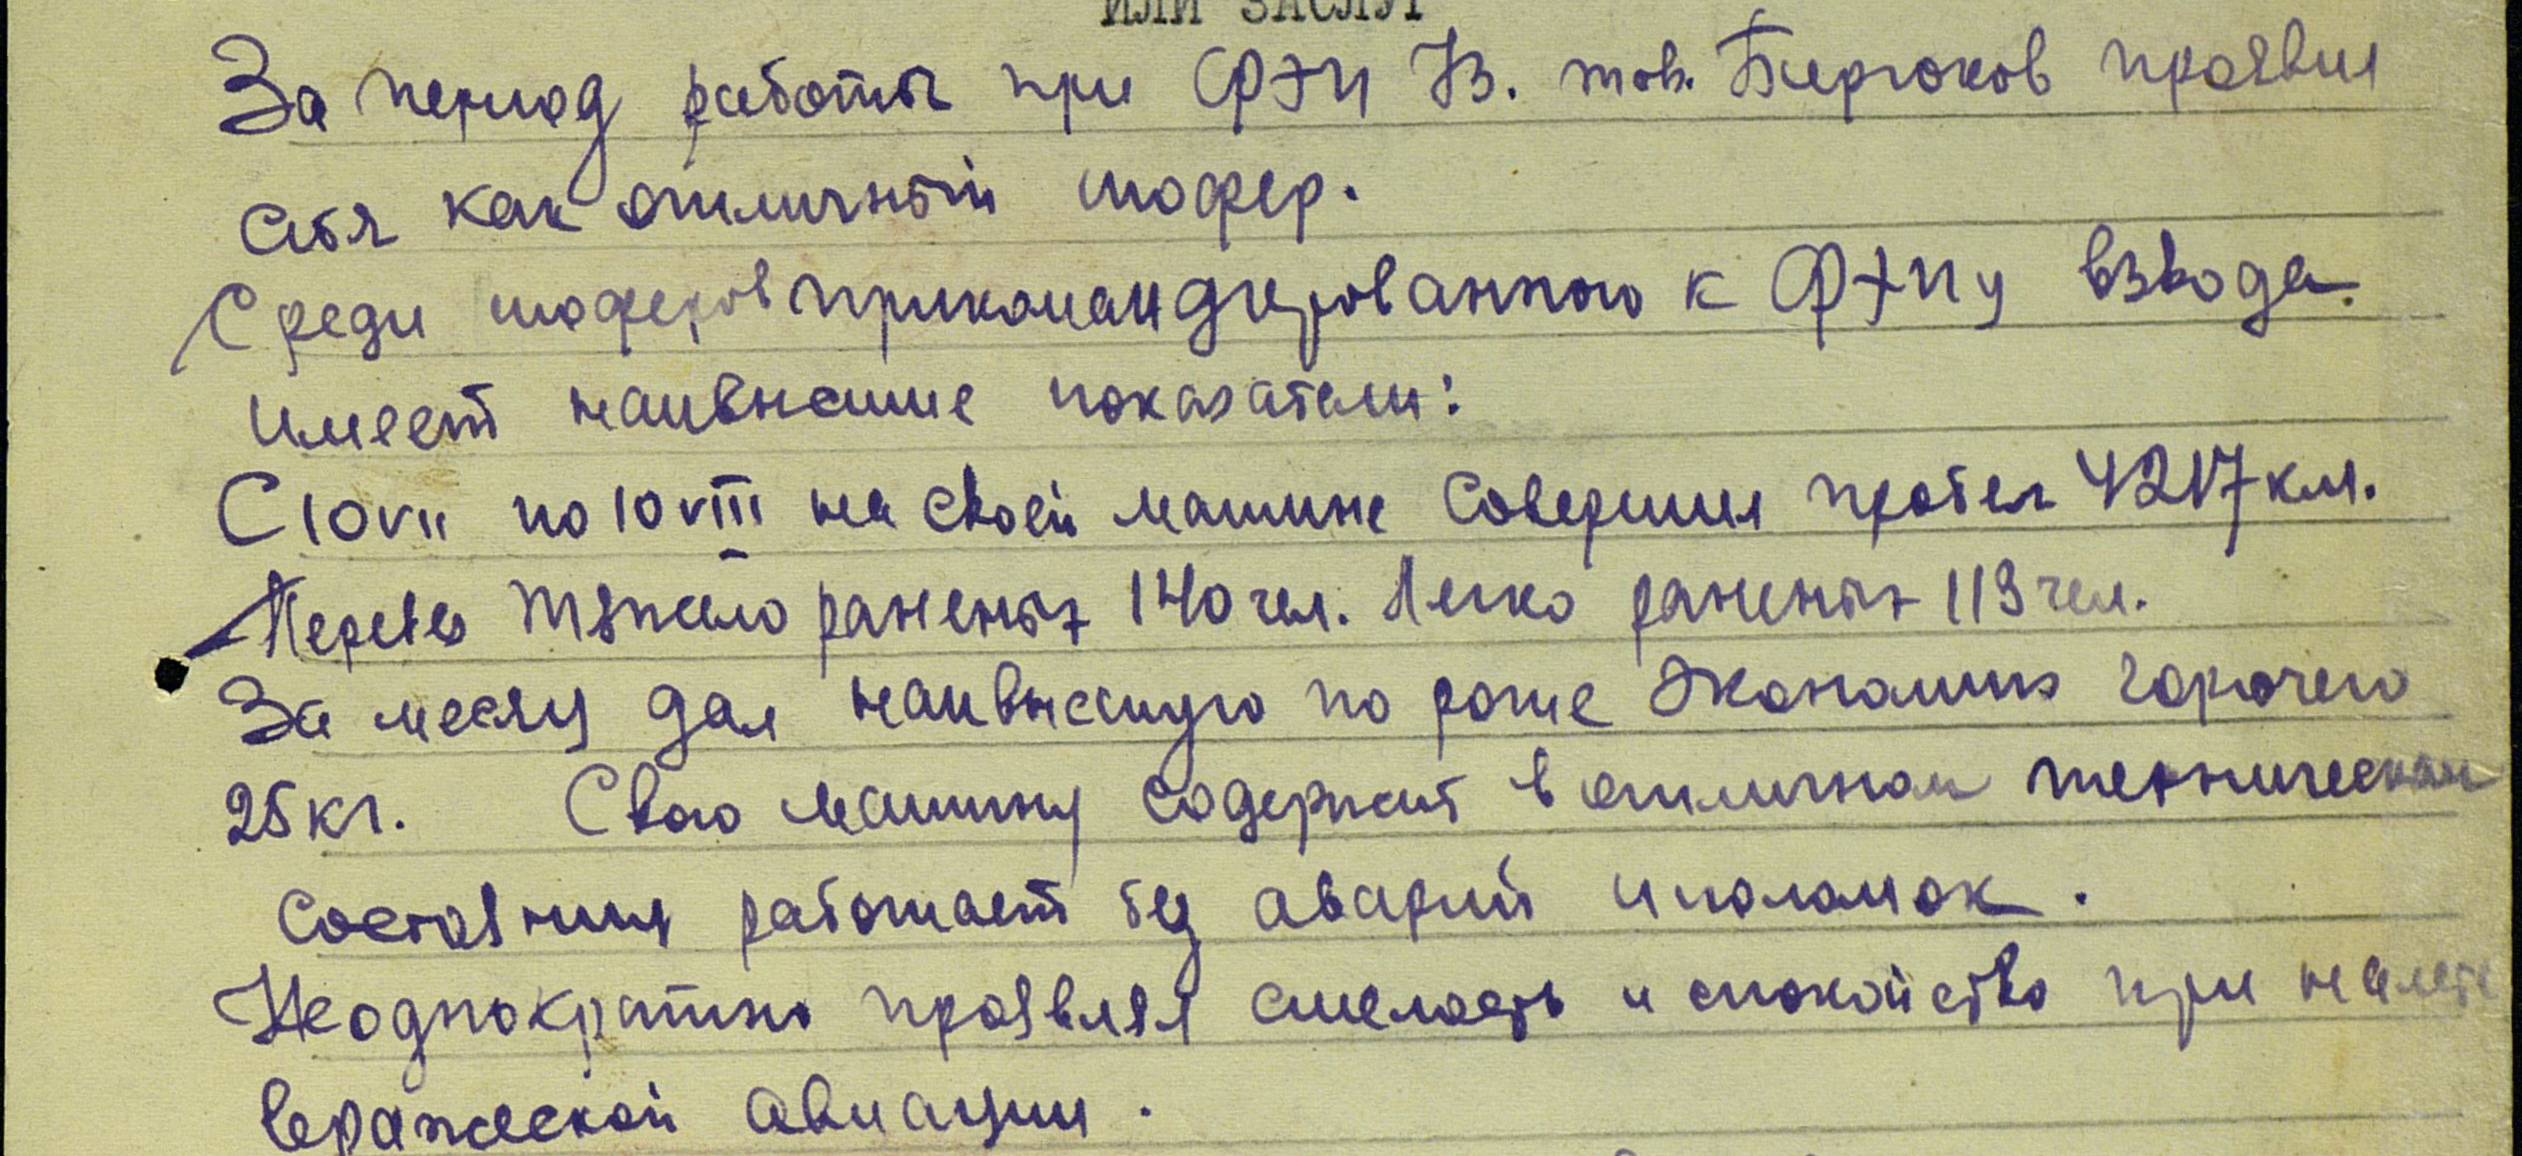 ИЛИ ЗАСЛУГ
За период работы при ФЭП тов. Бирюков проявил
себя как отличный шофер.
Среди шоферов прикомандированного к взвода
имеет наивысшие показатели:
С 10 VII по 10 VIII на своей машине совершил пробег 4217 км.
Перевез тяжело раненых 140 чел. Легко раненых 113 чел.
За месяц дал наивысшую по роте экономию горючего
25 кг. Свою машину содержит в отличном техническом
состоянии работает без аварий и поломок.
Неоднократно проявлял смелость и спокойство при налете
вражеской авиации.